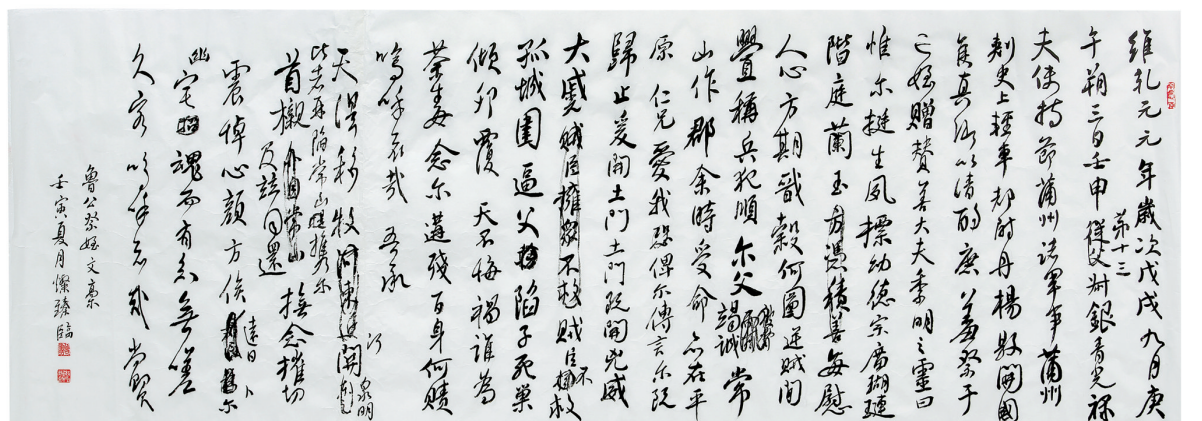 維乾元元年歲次戊戌九月庚
午朔三日壬申第十三從父叔銀青光祿
夫使持節蒲州諸軍事蒲州
刺史上輕車都尉丹楊縣開國
侯真卿以清酌庶羞祭于
亡姪贈贊善大夫季明之靈曰
惟爾挺生夙標幼德宗廟瑚璉
階庭蘭玉方憑積善每慰
人心方期戩穀何圖逆賊閒
釁稱兵犯順爾父竭誠常
山作郡余時受命亦在平
原仁兄愛我恐俾爾傳言爾既
歸止爰開土門土門既開兇威
大蹙賊臣擁衆不救賊臣不擁救
孤城圍逼父擒陷子死巢
傾卵覆天不悔禍誰為
荼毒念爾遘殘百身何贖
嗚呼哀哉吾承
天澤移牧河東近河關泉明
比者再陷常山携爾
首櫬及茲同還撫念摧切
震悼心顏方俟遠日卜爾
幽宅魂而有知無嗟
久客嗚呼哀哉尚饗
魯公祭姪文稾
壬寅夏月燦臻臨